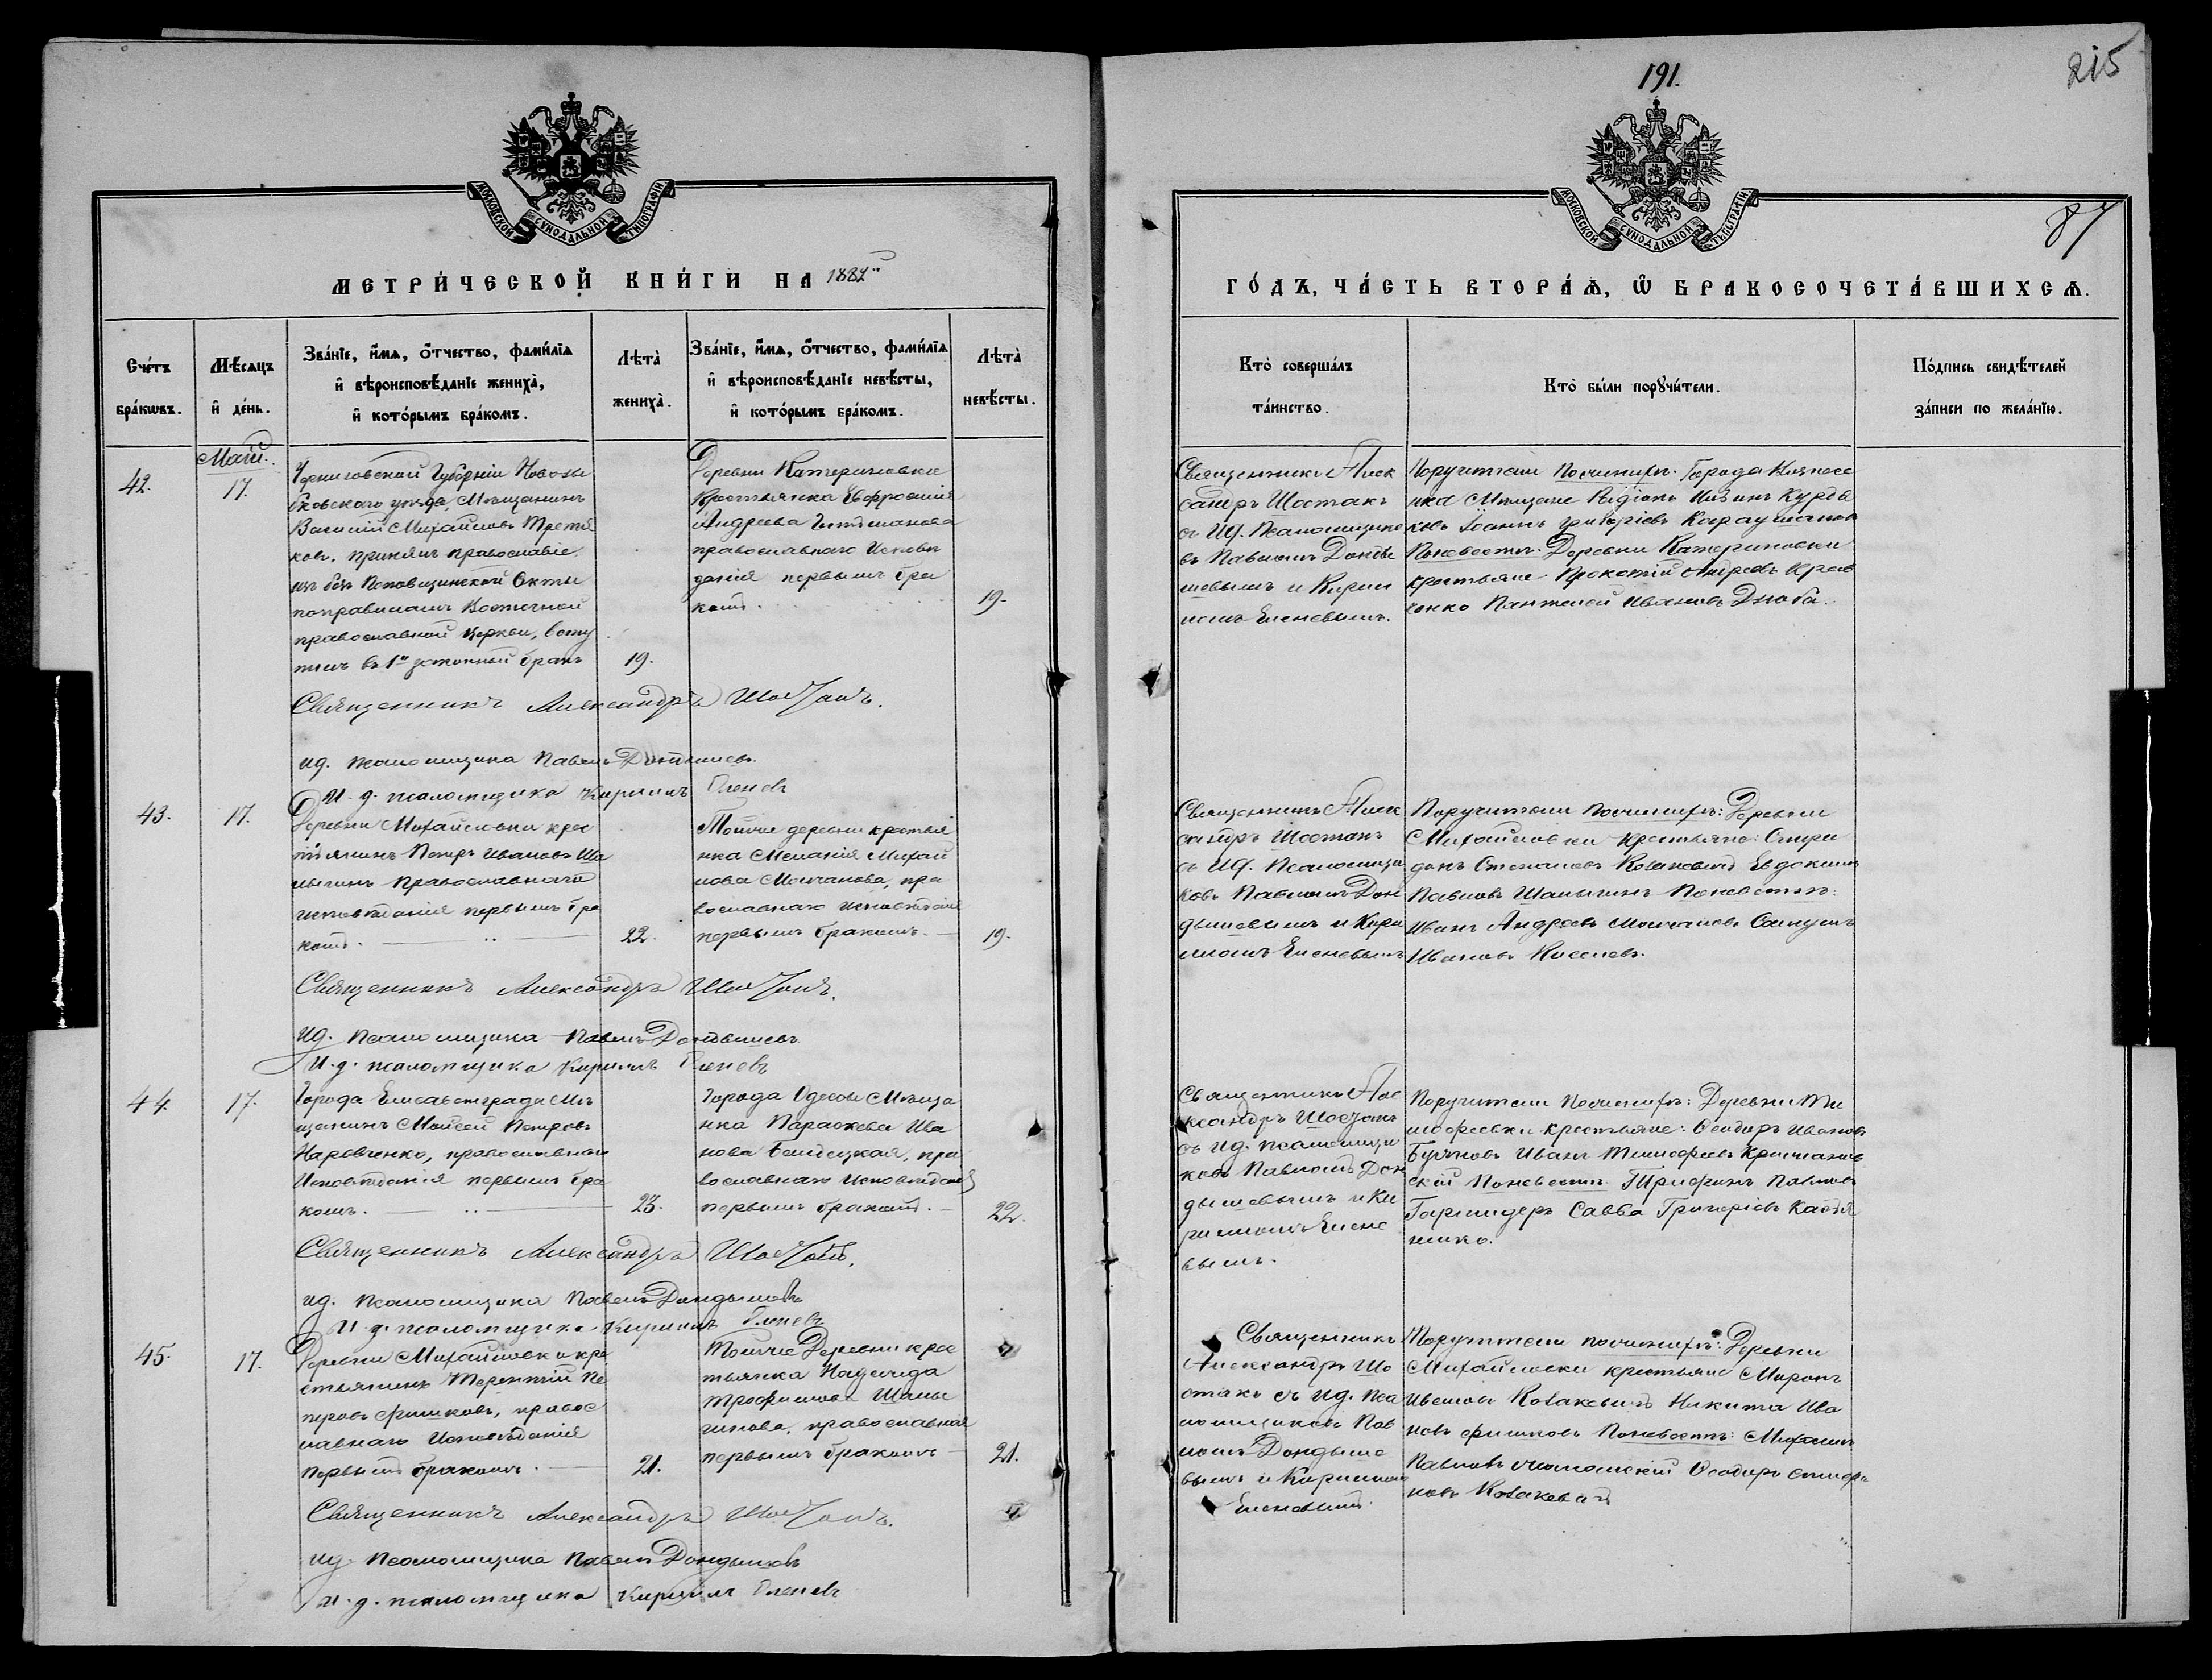 191.
215
87
МОСКОВСКОЙ СѴНОДАЛЬНОЙ ТИПОГРАФІИ
МОСКОВСКОЙ СѴНОДАЛЬНОЙ ТИПОГРАФІИ
МЕТРИ́ЧЕСКОЙ КНИ́ГИ НА
ГО́ДЪ, ЧА́СТЬ ВТОРА́Ѧ, Ѡ БРАКОСОЧЕТА́ВШИХСѦ.
Сче́тъ
бра́кѡвъ.
Мѣ́сѧцъ
и҆ де́нь.
Зва́нїе, и҆́мѧ, ѻ҆́тчество, фами́лїѧ
и҆ вѣроисповѣ́данїе жениха̀,
и҆ кото́рымъ бра́комъ.
Лѣта̀
жениха̀.
Зва́нїе, и҆́мѧ, ѻ҆́тчество, фами́лїѧ
и҆ вѣроисповѣ́данїе невѣ́сты,
и҆ кото́рымъ бра́комъ.
Лѣта̀
невѣ́сты.
Кто̀ соверша́лъ
та́инство.
Кто̀ бы́ли порꙋчи́тели.
По́дпись свидѣ́телей
за́писи по жела́нїю.
Май.
42.
17.
Черниговской Губерніи Новозы
бковскаго уѣзда, Мѣщанинъ
Василій Михайловъ Третя
ковъ, принялъ православіе
православной Церкви, всту
пилъ въ 1й законный бракъ
19.
Деревни Катериновки
Крестьянка Евфросинія
Андреева
православнаго Исповѣ
данія первымъ бра
комъ.
19.
Священникъ Алек
сандръ Шостакъ
съ И.д. Псаломщико
въ Павломъ Донды
шевымъ и Кирил
ломъ Еленевымъ.
Поручители По женихѣ: Города
Іоаннъ Григоріевъ
По невѣстѣ: Деревни Катериновки
крестьяне Прокопій Андреевъ Крав
ченко Пантелей Ивановъ Дзюба.
Священникъ Александръ Шостакъ.
И.д. псаломщика Павелъ Дондышевъ.
И. д. псаломщика Кириллъ Еленевъ
43.
17.
Деревни Михайловки крес
тьянинъ Петръ Ивановъ Ша
лыгинъ Православнаго
исповѣданія первымъ бра
комъ.
22.
Тойже деревни крестья
нка Меланія Михай
лова Молчанова, пра
вославнаго исповѣданія
первымъ бракомъ.
19.
Священникъ Алек
сандръ Шостакъ
съ И.д. Псаломщи
ковъ Павломъ Дон
дышевымъ и Кири
лломъ Еленевымъ
Поручители по женихѣ: Деревни
Михайловки крестьяне: Спири
донъ Степановъ Ковакевичъ Евдокимъ
Павловъ Шалыгинъ По невѣстѣ:
Иванъ Андреевъ Молчановъ Самуилъ
Ивановъ Киселевъ.
Священникъ Александръ Шостакъ.
И.д. Псаломщика Павелъ Дондышевъ.
И. д. псаломщика Кириллъ Еленевъ
44.
17.
Города Елисаветграда Мѣ
щанинъ Мойсей Петровъ
Наровченко, православнаго
Исповѣданія первымъ бра
комъ.
23.
Города Одессы Мѣща
нка Параскева Ива
нова пра
вославнаго Исповѣданія
первымъ бракомъ.
22.
Священникъ Але
ксандръ Шостакъ
съ И.д. псаломщи
ковъ Павломъ Дон
дышевымъ и Ки
рилломъ Елене
вымъ.
Поручители По женихѣ: Деревни Ти
мофеевки крестьяне: Ѳеодоръ Ивановъ
Иванъ Тимофеевъ
По невѣстѣ Трифонъ Павловъ
Савва Григоріевъ
Священникъ Александръ Шостакъ.
И.д. Псаломщика Павелъ Дондышевъ
И. д. псаломщика Кириллъ Еленевъ
45.
17.
Деревни Михайловки кре
стьянинъ Терентій Пе
тровъ Фишковъ, правос
лавнаго Исповѣданія
первымъ бракомъ.
21.
Тойже Деревни крес
тьянка Надежда
Трофимова Шалы
гинова, православная
первымъ бракомъ
21.
Священникъ
Александръ Шо
стакъ съ И.д. Пса
ломщиковъ Пав
ломъ Дондыше
вымъ и Кирилломъ
Еленевымъ.
Поручители по женихѣ: Деревни
Михайловки крестьяне Миронъ
Ивановъ Ковакевичъ Никита Ива
новъ Фишковъ По невѣстѣ: Михаилъ
Павловъ Ѳеодоръ
Ковакевичъ
Священникъ Александръ Шостакъ.
И.д. Псаломщика Павелъ Дондышевъ
И. д. псаломщика Кириллъ Еленевъ